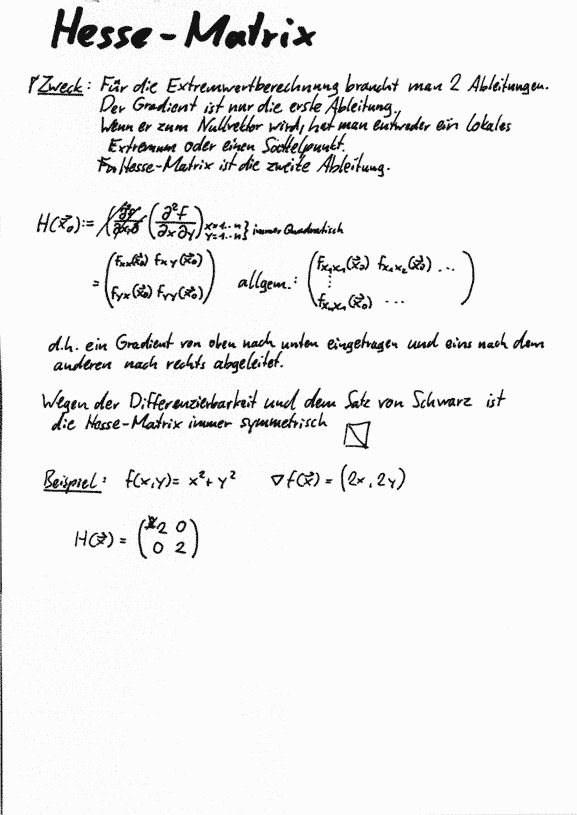 Hesse-Matrix
Zweck: Für die Extremwertberechnung braucht man 2 Ableitungen.
Der Gradient ist nur die erste Ableitung.
Wenn er zum Nullvektor wird, hat man entweder ein lokales
Extremum oder einen Sattelpunkt.
Hesse-Matrix ist die zweite Ableitung.
H(x⃗₀) := (∂²f / ∂x∂y) x=1..n y=1..n } immer Quadratisch
= (fxx(x⃗₀) fxy(x⃗₀) allgem.: (fx₁x₁(x⃗₀) fx₁x₂(x⃗₀) ...
⋮
fyx(x⃗₀) fyy(x⃗₀)) fxₙx₁(x⃗₀) ... )
d.h. ein Gradient von oben nach unten eingetragen und eins nach dem
anderen nach rechts abgeleitet.
Wegen der Differenzierbarkeit und dem Satz von Schwarz ist
die Hesse-Matrix immer symmetrisch
Beispiel: f(x,y) = x² + y² ∇f(x⃗) = (2x, 2y)
H(x⃗) = (2 0
0 2)